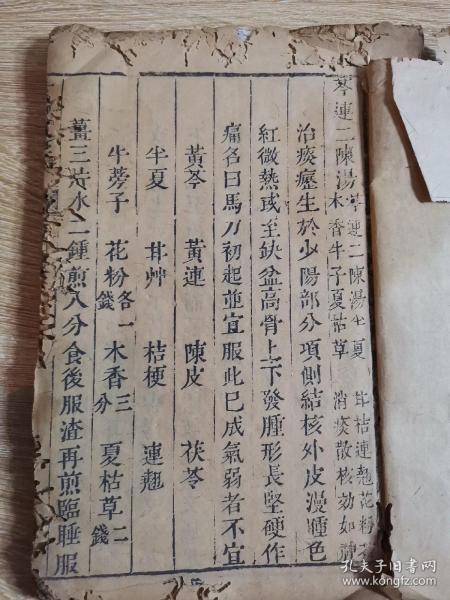 芩連二陳湯 芩連二陳湯半夏 甘桔連翹花粉
木香牛子夏枯草 消痰散核効如神
治痰癧生於少陽部分項側結核外皮漫腫色
紅微熱或至缺盆高骨上下發腫形長堅硬作
痛名曰馬刀初起並宜服此已成氣弱者不宜
黃芩 黃連 陳皮 茯苓
半夏 甘艸 桔梗 連翹
牛蒡子 花粉各一錢 木香三分 夏枯草二錢
薑三片水二鍾煎八分食後服渣再煎臨睡服
孔夫子旧书网